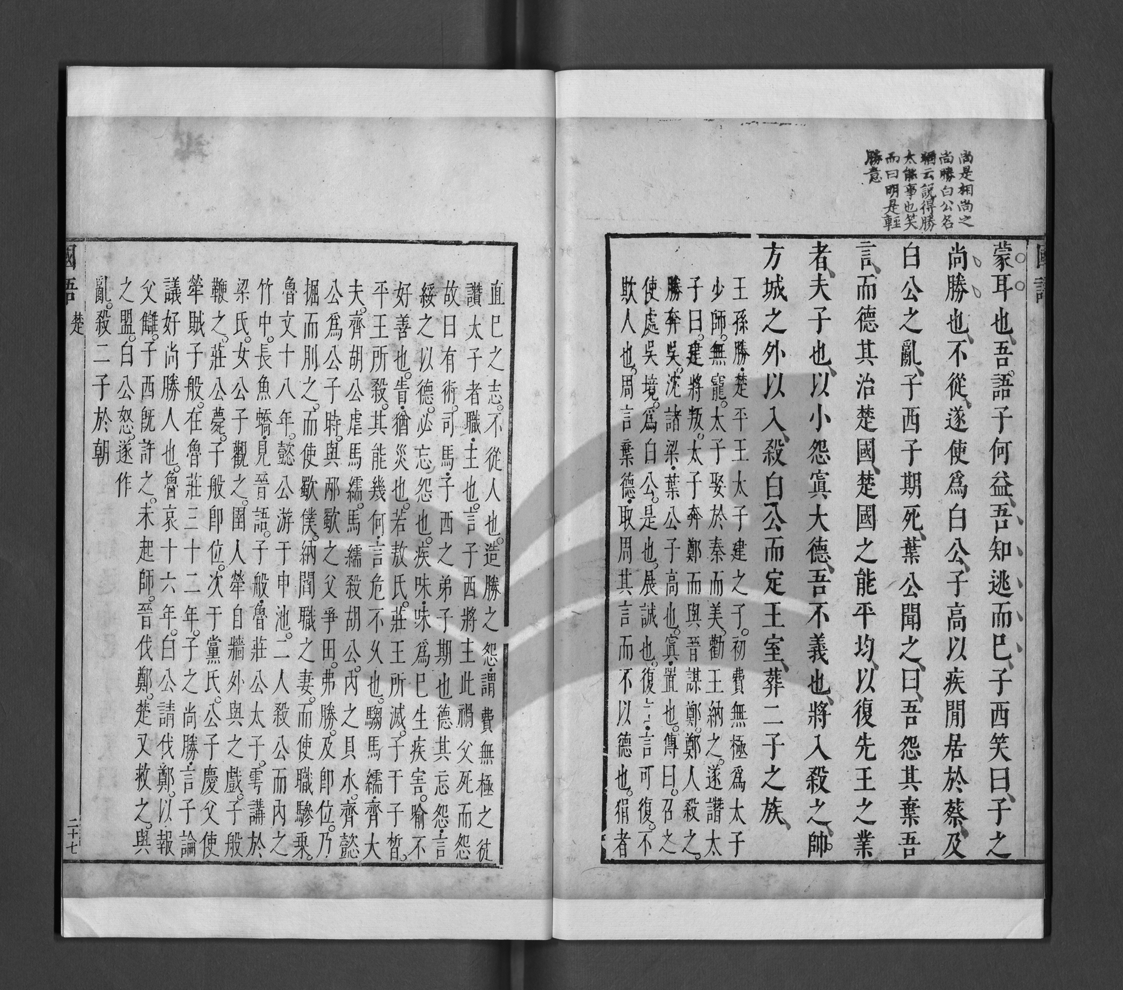 尚是相尚之
尚勝白公名
猶云說得勝
太能事也笑
而曰明是輕
勝意
國語
蒙耳也、吾語子何益、吾知逃而已、子西笑曰、子之
尚勝也、不從、遂使為白公、子高以疾閒居於蔡、及
白公之亂、子西子期死、葉公聞之、曰、吾怨其棄吾
言、而德其治楚國、楚國之能平均、以復先王之業
者、夫子也、以小怨寘大德、吾不義也、將入殺之、帥
方城之外以入、殺白公而定王室、葬二子之族、
王孫勝・楚平王太子建之子。初費無極為太子
少師。無寵。太子娶於秦而美。勸王納之。遂譖太
子曰。建將叛。太子奔鄭。而與晉謀鄭。鄭人殺之。
勝奔吳。沈諸梁・葉公子高也。寘・置也。傳曰。召之。
使處吳境。為白公。是也。展誠也。復言・言可復。不
欺人也。周言棄德・取周其言而不以德也。狷者
直己之志。不從人也。造勝之怨・謂費無極之徒
讚太子者職・主也。言子西將主此禍父死而怨
故曰有術。司馬・子西之弟子期也。德其忘怨・言
綏之以德。必忘怨也。疾味・味為己生疾害。喻不
好善也。眚・猶災也。若敖氏・莊王所滅。子干子晳・
平王所殺。其能幾何・言危不久也。騶馬繻・齊大
夫。齊胡公虐馬繻。馬繻殺胡公。內之貝水。齊懿
公為公子時。與邴歜之父爭田。弗勝。及即位。乃
掘而刖之。而使歜僕。納閻職之妻。而使職驂乘。
魯文十八年。懿公游于申池。二人殺公而內之
竹中。長魚蟜・見晉語。子般・魯莊公太子。雩講於
梁氏。女公子觀之。圉人犖自牆外與之戲。子般
鞭之。莊公薨。子般即位。次于黨氏。公子慶父使
犖賊子般。在魯莊三十二年。子之尚勝・言子論
議好尚勝人也。魯哀十六年。白公請伐鄭。以報
父讎。子西既許之。未起師。晉伐鄭。楚又救之。與
之盟。白公怒。遂作
亂。殺二子於朝
國語
楚
二十七